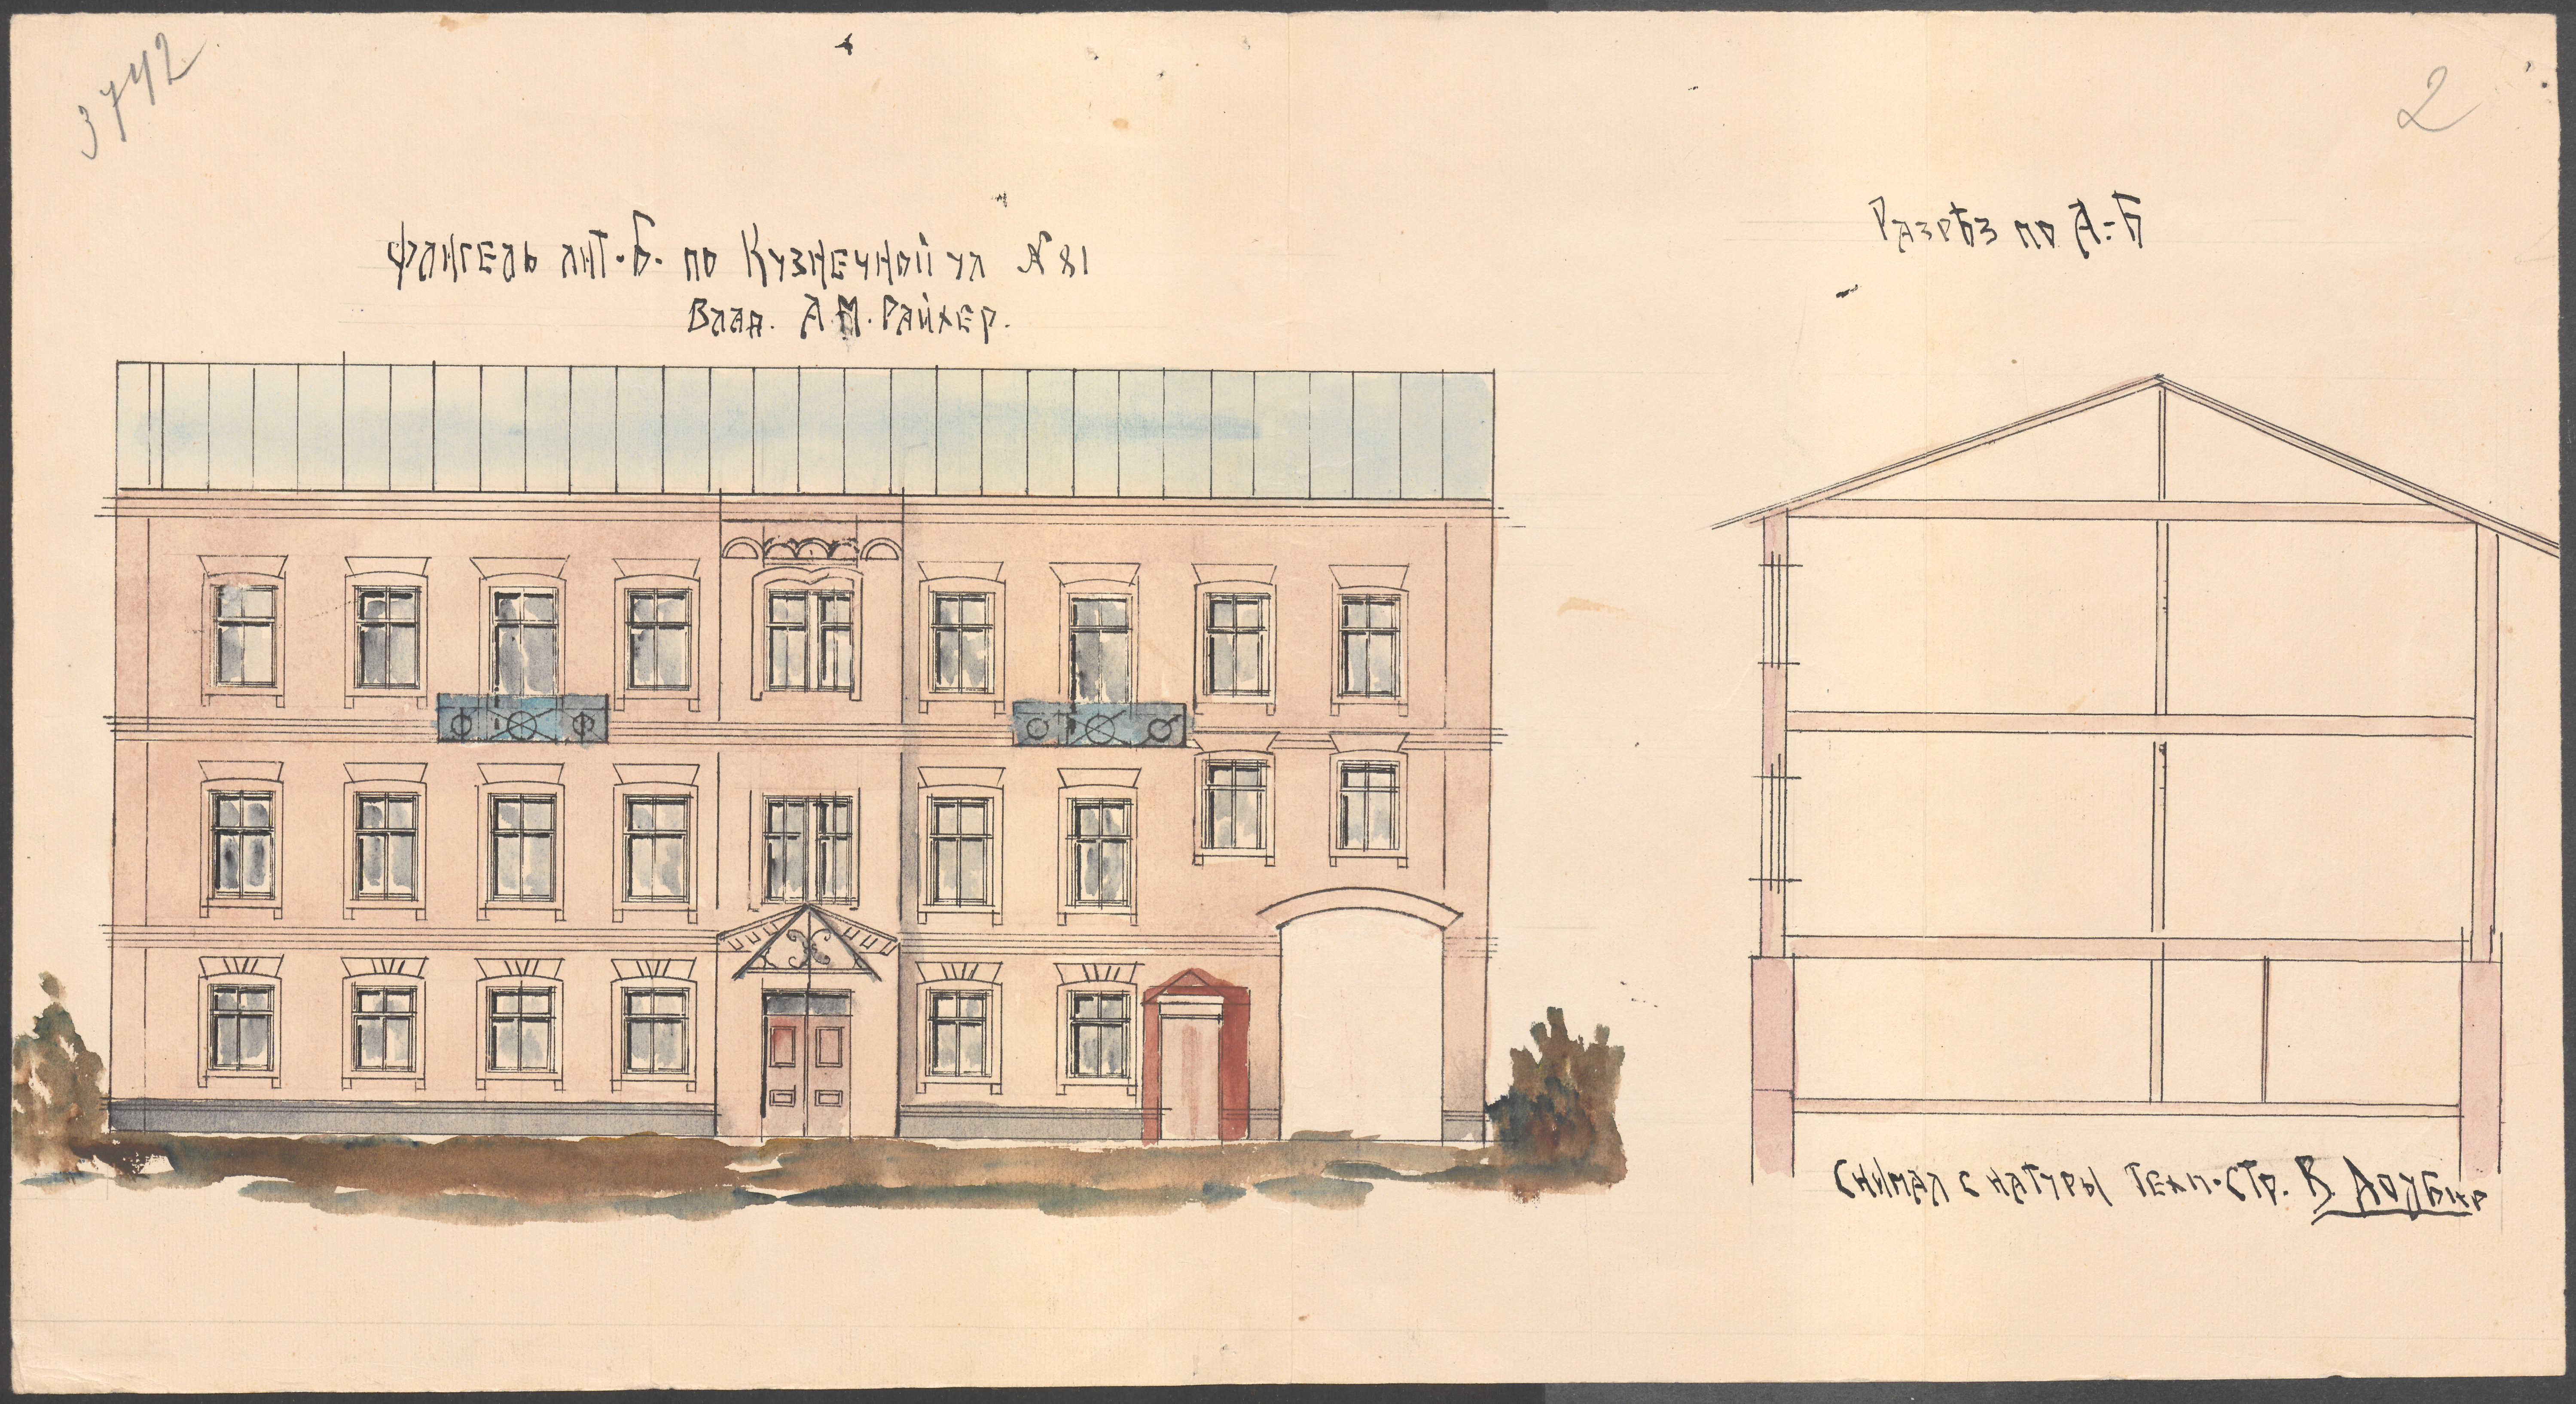 3742
2
Флигель лит. Б. по Кузнечной ул № 81
Влад. А.М. Райхер.
Разрѣз по А-Б
Снимал с натуры техн. стр. В.